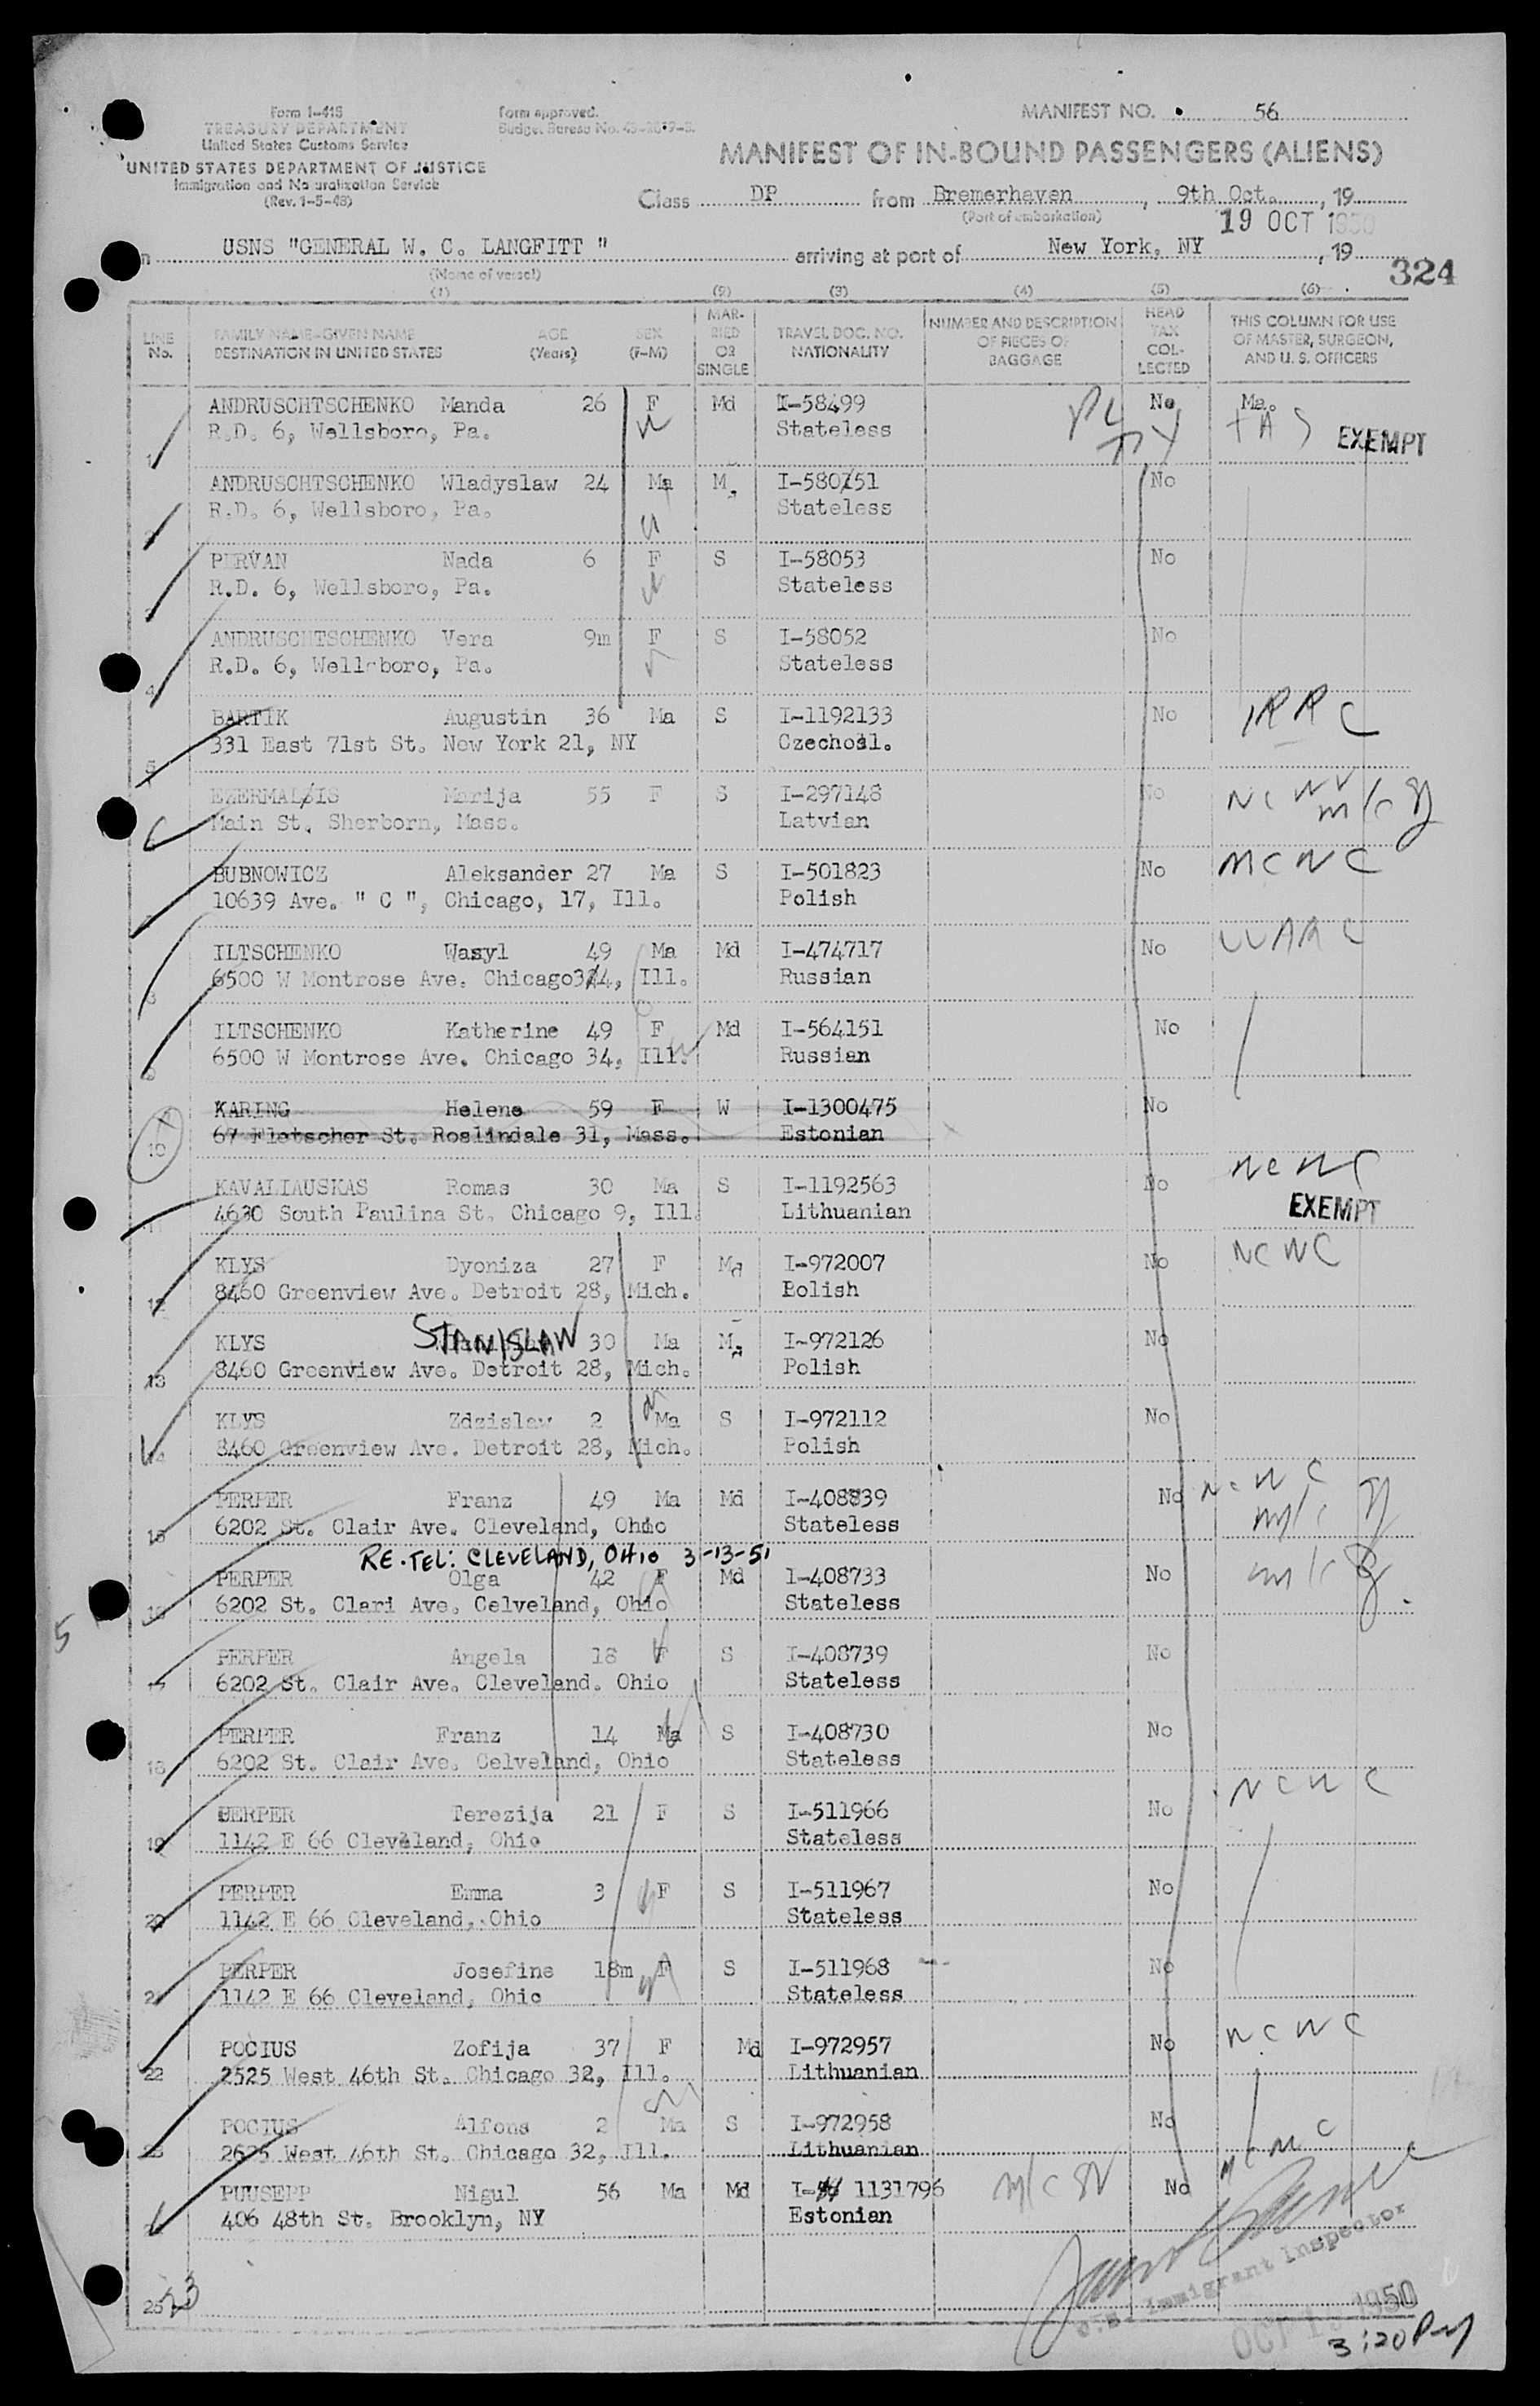 Form I-418
TREASURY DEPARTMENT
United States Customs Service
UNITED STATES DEPARTMENT OF JUSTICE
Immigration and Naturalization Service
(Rev. 1-5-48)
Form approved.
Budget Bureau No.
MANIFEST NO. 56
MANIFEST OF IN-BOUND PASSENGERS (ALIENS)
Class DP from Bremerhaven, 9th Oct., 19
(Port of embarkation)
19 OCT 1950
USNS "GENERAL W. C. LANGFITT " arriving at port of New York, NY, 19
(Name of vessel)
324
(1) (2) (3) (4) (5) (6)
LINE No. FAMILY NAME-GIVEN NAME DESTINATION IN UNITED STATES AGE (Years) SEX (F-M) MARRIED OR SINGLE TRAVEL DOC. NO. NATIONALITY NUMBER AND DESCRIPTION OF PIECES OF BAGGAGE HEAD TAX COLLECTED THIS COLUMN FOR USE OF MASTER, SURGEON, AND U. S. OFFICERS
ANDRUSCHTSCHENKO Manda 26 F Md I-58499 No Ma.
R.D. 6, Wellsboro, Pa. Stateless EXEMPT
ANDRUSCHTSCHENKO Wladyslaw 24 Ma M. I-58051 No
R.D. 6, Wellsboro, Pa. Stateless
PERVAN Nada 6 F S I-58053 No
R.D. 6, Wellsboro, Pa. Stateless
ANDRUSCHTSCHENKO Vera 9m F S I-58052 No
4 R.D. 6, Wellsboro, Pa. Stateless
BARTIK Augustin 36 Ma S I-1192133 No IRRC
5 331 East 71st St. New York 21, NY Czechosl.
EZERMALSIS Marija 55 F S I-297148 No
Main St. Sherborn, Mass. Latvian
BUBNOWICZ Aleksander 27 Ma S I-501823 No NCWC
10639 Ave. " C ", Chicago, 17, Ill. Polish
ILTSCHENKO Wasyl 49 Ma Md I-474717 No WARC
6500 W Montrose Ave. Chicago 34, Ill. Russian
ILTSCHENKO Katherine 49 F Md I-564151 No
6500 W Montrose Ave. Chicago 34, Ill. Russian
KARING Helene 59 F W I-1300475 No
10 67 Fletscher St. Roslindale 31, Mass. Estonian
KAVALIAUSKAS Romas 30 Ma S I-1192563 No NCWC
11 4630 South Paulina St. Chicago 9, Ill. Lithuanian EXEMPT
KLYS Dyoniza 27 F Md I-972007 No NCWC
12 8460 Greenview Ave. Detroit 28, Mich. Bolish
KLYS STANISLAW 30 Ma M. I-972126 No
13 8460 Greenview Ave. Detroit 28, Mich. Polish
KLYS Zdzislaw 2 Ma S I-972112 No
14 8460 Greenview Ave. Detroit 28, Mich. Polish
PERPER Franz 49 Ma Md I-408839 No NCWC
15 6202 St. Clair Ave. Cleveland, Ohio Stateless
RE.TEL: CLEVELAND, OHIO 3-13-51
PERPER Olga 42 F Md I-408733 No
16 6202 St. Clari Ave. Celveland, Ohio Stateless
5
PERPER Angela 18 F S I-408739 No
17 6202 St. Clair Ave. Cleveland. Ohio Stateless
PERPER Franz 14 Ma S I-408730 No
18 6202 St. Clair Ave. Celveland, Ohio Stateless
PERPER Terezija 21 F S I-511966 No NCWC
19 1142 E 66 Cleveland, Ohio Stateless
PERPER Emma 3 F S I-511967 No
20 1142 E 66 Cleveland, Ohio Stateless
PERPER Josefine 18m F S I-511968 No
2 1142 E 66 Cleveland, Ohio Stateless
POCIUS Zofija 37 F Md I-972957 No NCWC
22 2525 West 46th St. Chicago 32, Ill. Lithuanian
POCIUS Alfons 2 Ma S I-972958 No
23 2625 West 46th St. Chicago 32, Ill. Lithuanian
PUUSEPP Nigul 56 Ma Md I- 1131796 No
406 48th St. Brooklyn, NY Estonian
U.S. Immigrant Inspector
25 23
OCT 1950
3:20 PM